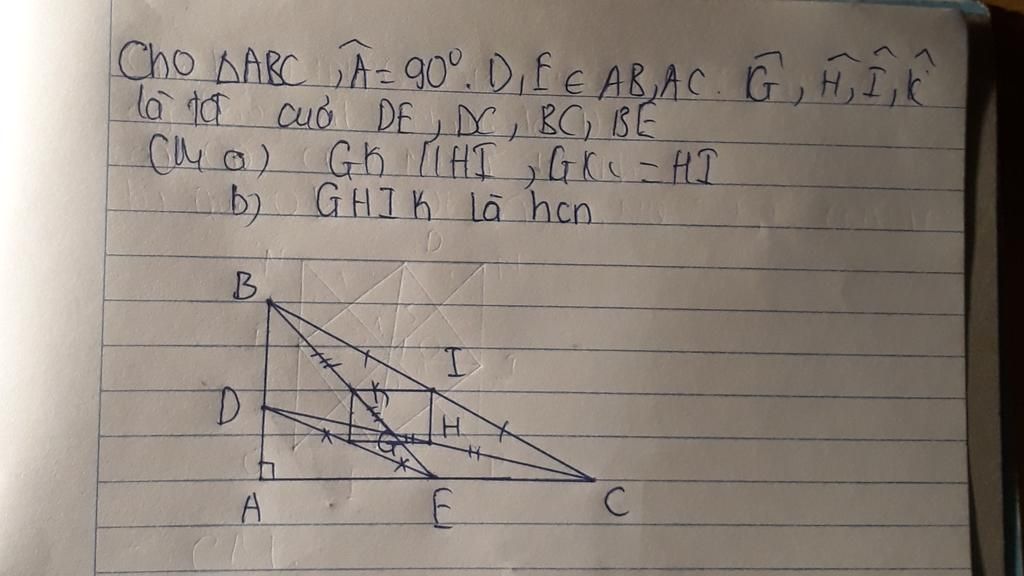 Cho ΔABC, Â = 90°. D, E ∈ AB, AC. Ĝ, Ĥ, Î, K̂
là tđ cuả DE, DC, BC, BE
CM a) GK // HI, GK = HI
b) GHIK là hcn
B
I
K
D
H
G
A
E
C